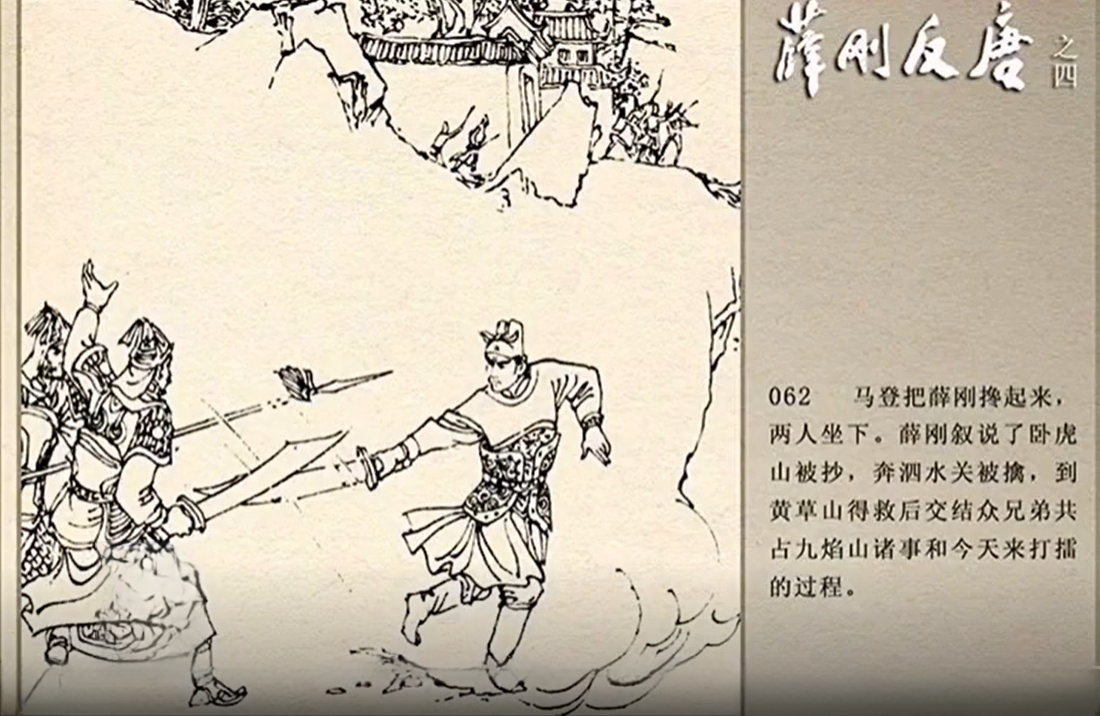 薛刚反唐
之四
062 马登把薛刚搀起来，
两人坐下。薛刚叙说了卧虎
山被抄，奔泗水关被擒，到
黄草山得救后交结众兄弟共
占九焰山诸事和今天来打擂
的过程。